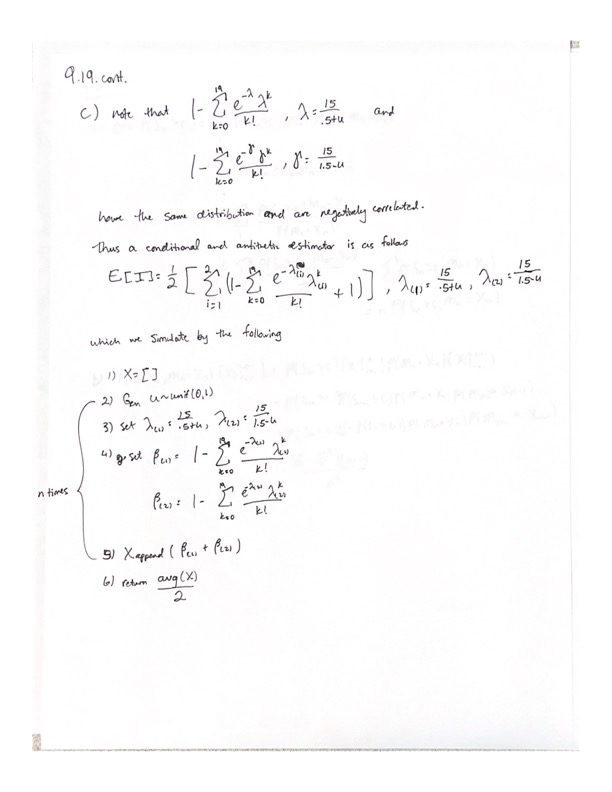 9.19. cont.
c) note that 1 - \sum_{k=0}^{19} \frac{e^{-λ} λ^k}{k!} , λ = \frac{15}{.5+u} and
1 - \sum_{k=0}^{19} \frac{e^{-γ} γ^k}{k!} , γ = \frac{15}{1.5-u}
have the same distribution and are negatively correlated.
Thus a conditional and antithetic estimator is as follows
E[I] = \frac{1}{2} [ \sum_{i=1}^{2} (1 - \sum_{k=0}^{19} \frac{e^{-λ_{(i)}} λ_{(i)}^k}{k!} + 1) ] , λ_{(1)} = \frac{15}{.5+u} , λ_{(2)} = \frac{15}{1.5-u}
which we simulate by the following
1) X = []
2) Gen u ~ unif(0,1)
3) set λ_{(1)} = \frac{15}{.5+u} , λ_{(2)} = \frac{15}{1.5-u}
4) set β_{(1)} = 1 - \sum_{k=0}^{19} \frac{e^{-λ_{(1)}} λ_{(1)}^k}{k!}
n times
β_{(2)} = 1 - \sum_{k=0}^{19} \frac{e^{-λ_{(2)}} λ_{(2)}^k}{k!}
5) X append (β_{(1)} + β_{(2)})
6) return \frac{avg(X)}{2}